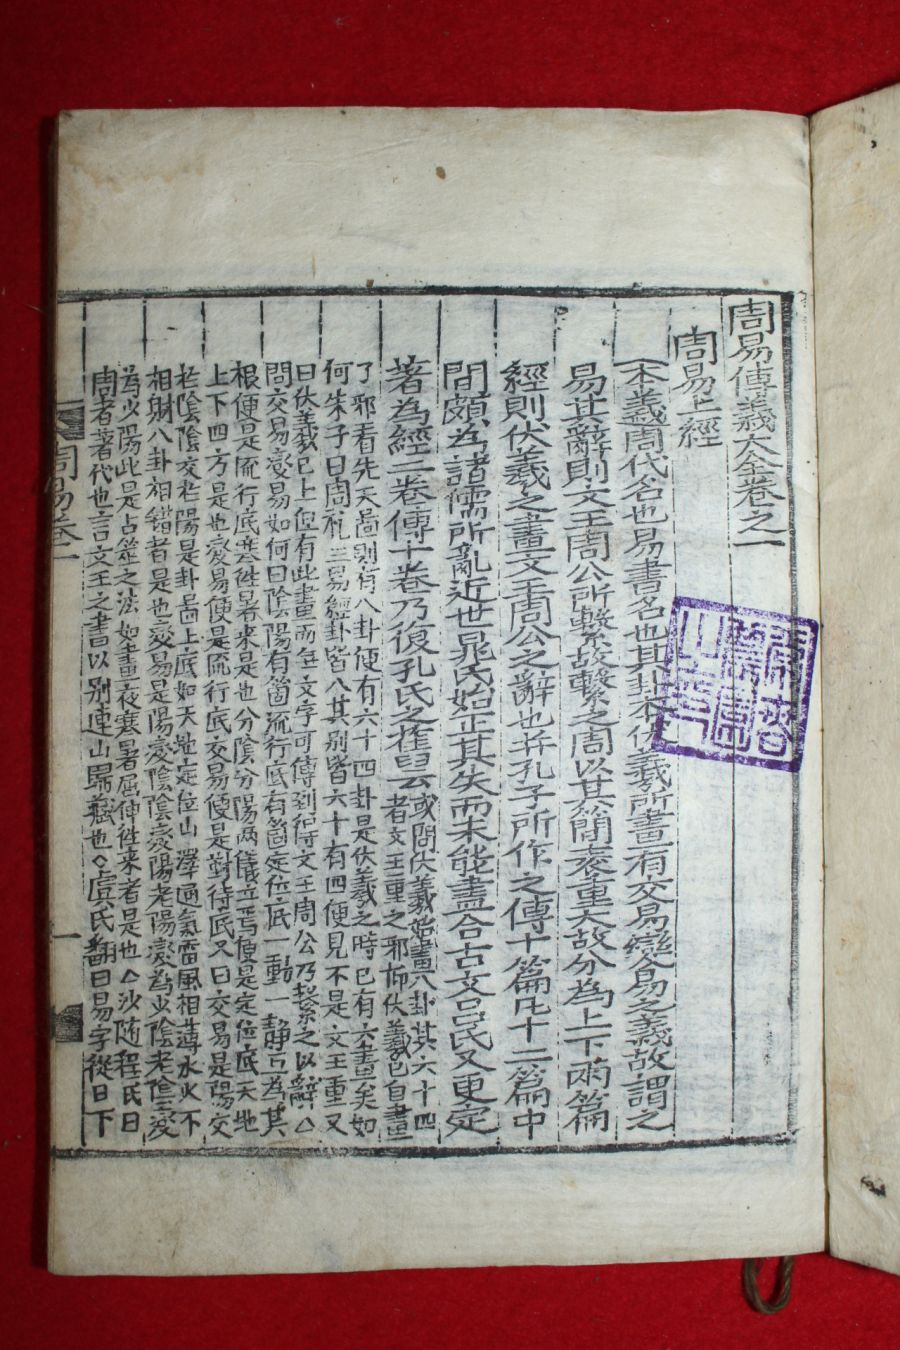 周易傳義大全卷之一
周易上經
本義周代名也易書名也其卦本伏羲所畫有交易變易之義故謂之
易其辭則文王周公所繫故繫之周以其簡袠重大故分為上下兩篇
經則伏羲之畫文王周公之辭也幷孔子所作之傳十篇凡十二篇中
間頗為諸儒所亂近世晁氏始正其失而未能盡合古文呂氏又更定
著為經二卷傳十卷乃復孔氏之舊云
或問伏羲始畫八卦其六十四
者文王重之邪抑伏羲已自畫
了邪看先天圖則有八卦便有六十四卦是伏羲之時已有六畫矣如
何朱子曰周禮三易經卦皆八其別皆六十有四便見不是文王重又
曰伏羲已上但有此畫而無文字可傳到得文王周公乃繫之以辭△
問交易變易如何曰陰陽有箇流行底有箇定位底一動一靜互為其
根便是流行底寒徃暑來是也分陰分陽兩儀立焉便是定位底天地
上下四方是也變易便是流行底交易便是對待底又曰交易是陽交
於陰陰交於陽是卦圖上底如天地定位山澤通氣雷風相薄水火不
相射八卦相錯者是也變易是陽變陰陰變陽老陽變為少陰老陰變
為少陽此是占筮之法如晝夜寒暑屈伸徃來者是也△沙隨程氏曰
周者著代也言文王之書以別連山歸藏也△虞氏翻曰易字從日下
周易卷一
一